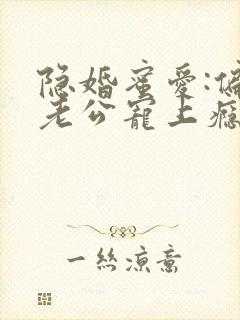 隐婚蜜爱:偏
老公宠上瘾
一丝凉意